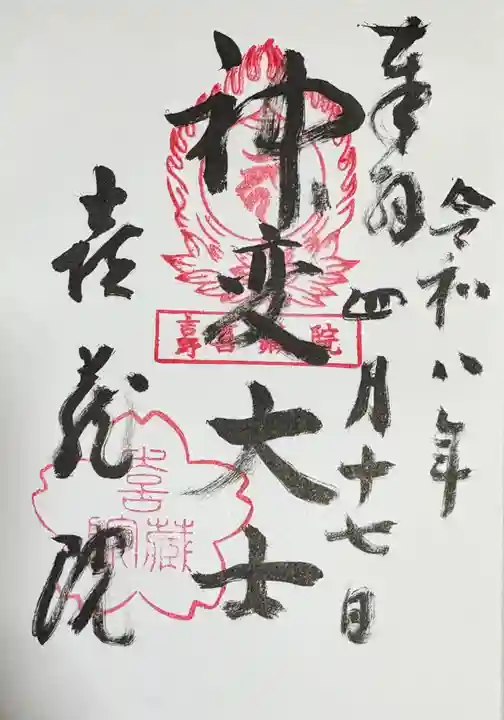 奉拝
令和八年
四月十七日
神変大士
喜蔵院
吉野喜蔵院
喜蔵院